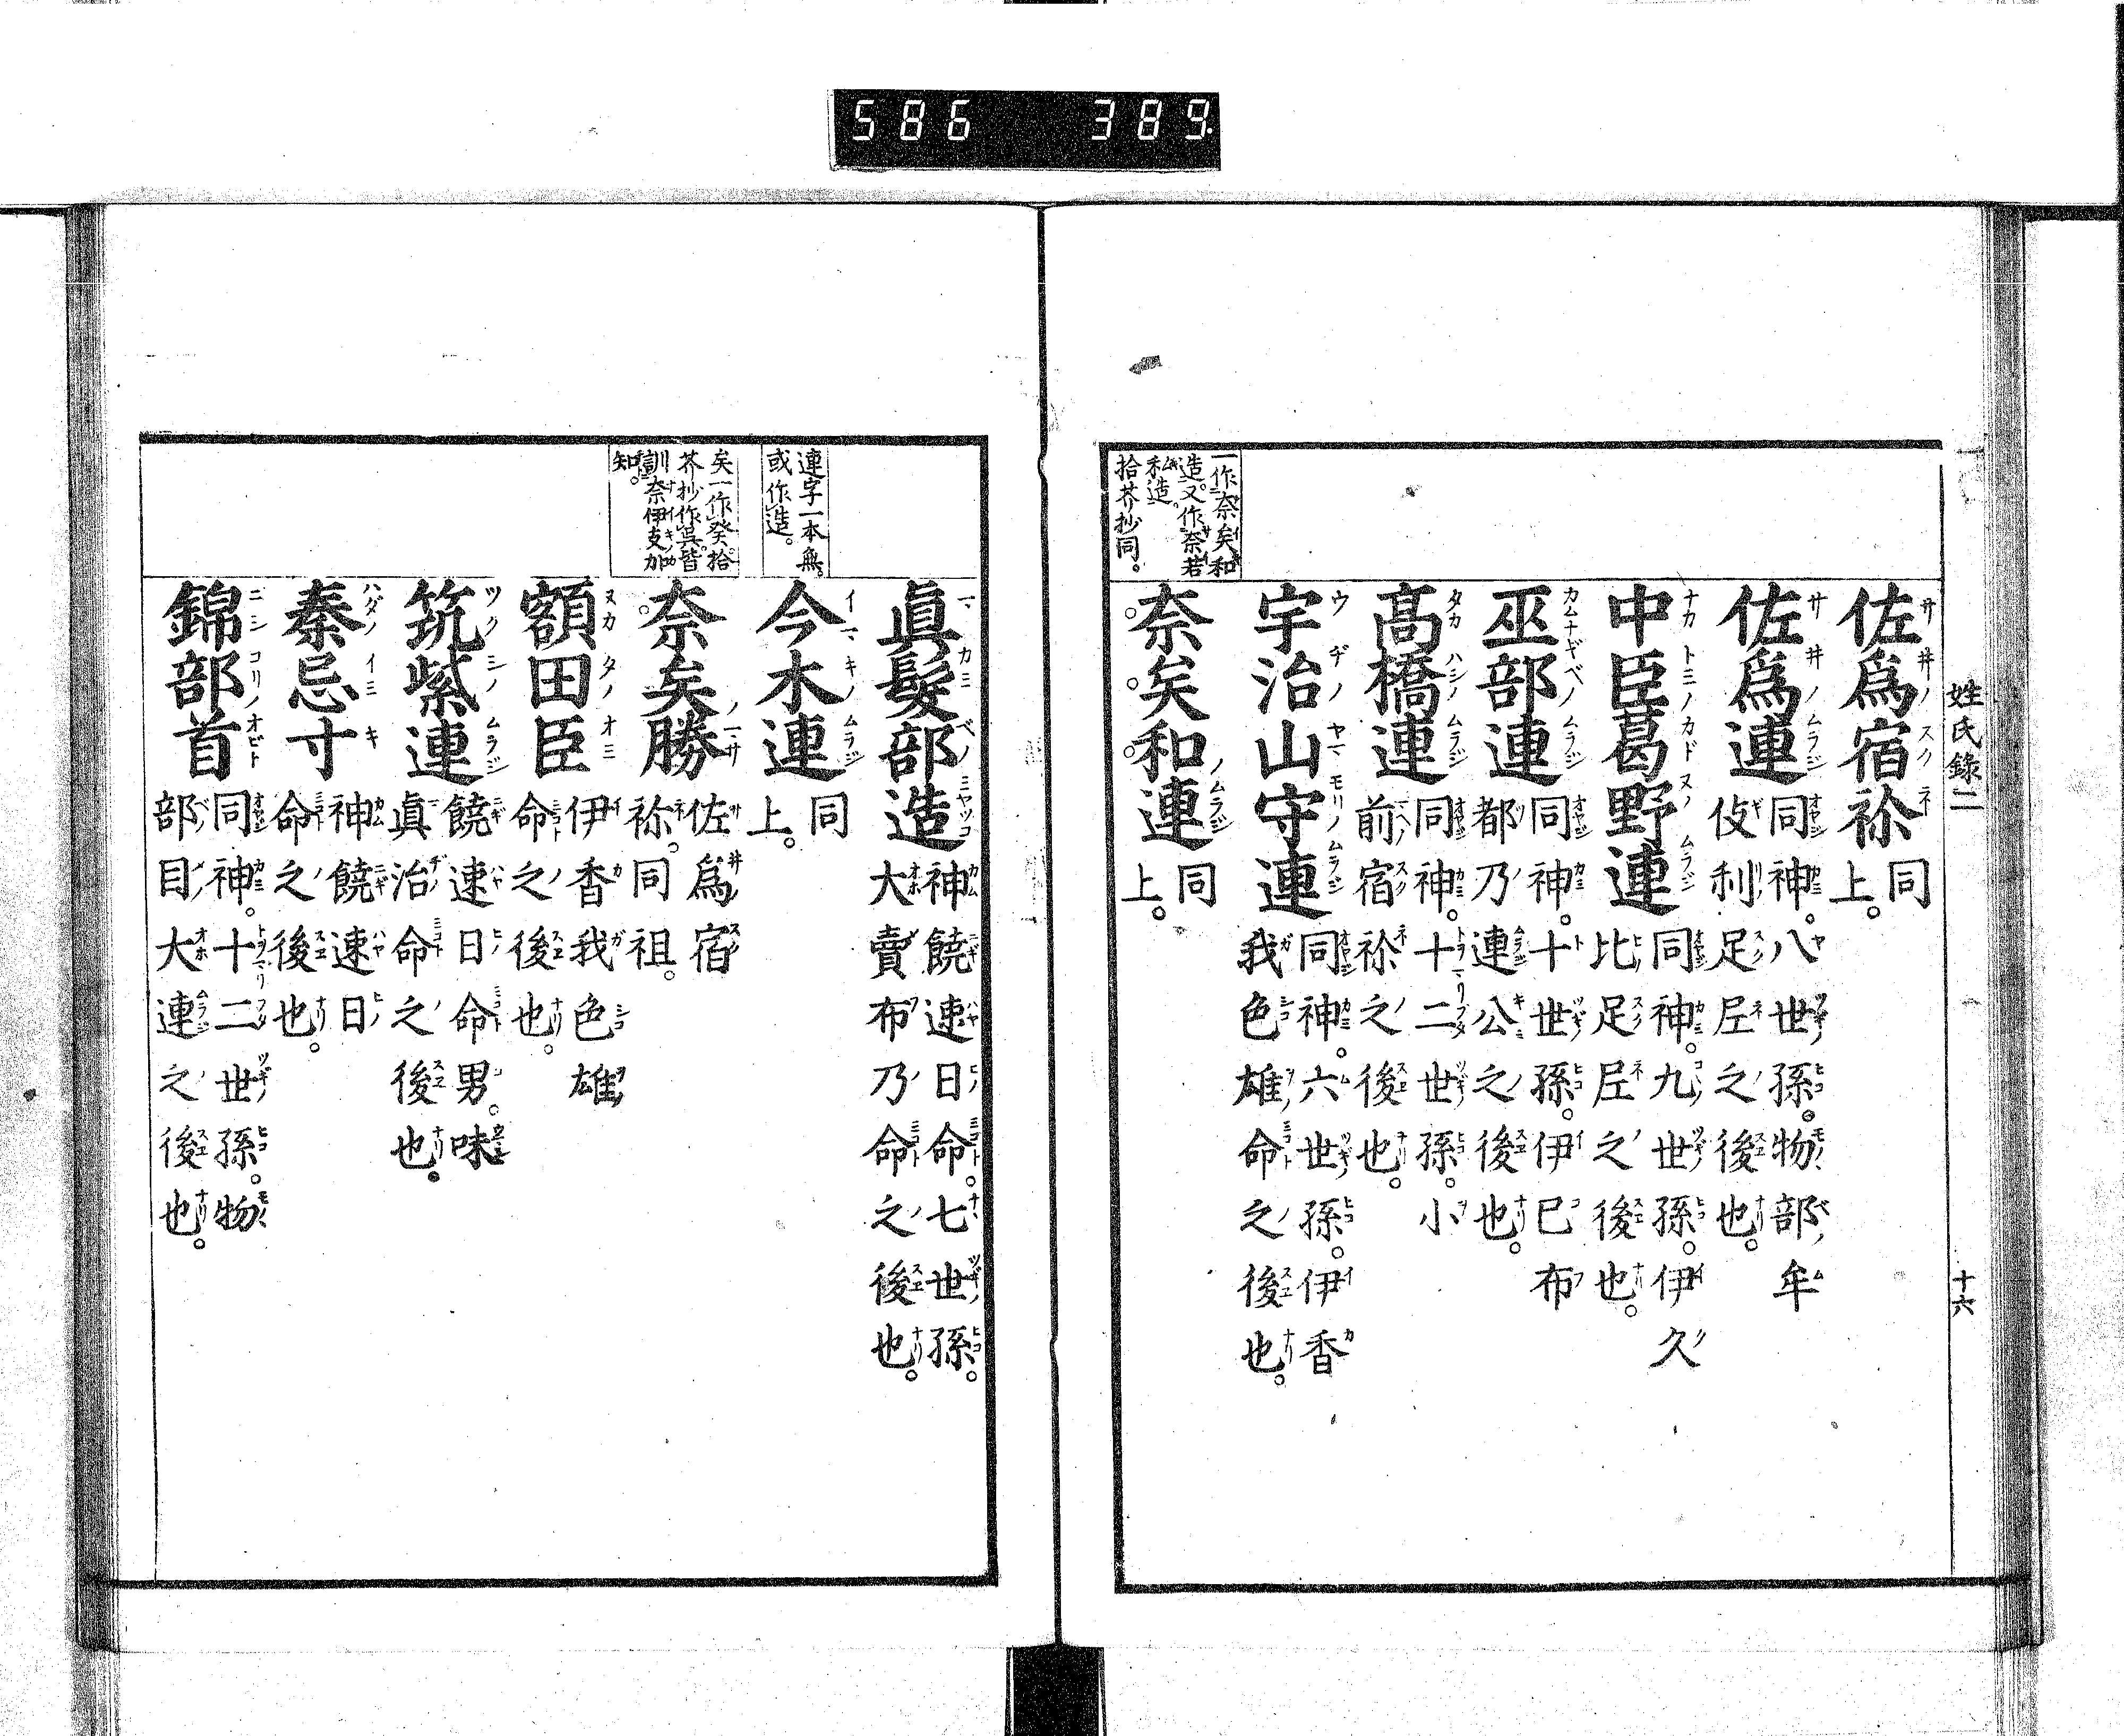 586 389.
姓氏錄二
十六
佐爲宿祢同上。
佐爲連同神。八世孫。物部牟伎利足尼之後也。
中臣葛野連同神。九世孫。伊久比足尼之後也。
巫部連同神。十世孫。伊己布都乃連公之後也。
髙橋連同神。十二世孫。小前宿祢之後也。
宇治山守連同神。六世孫。伊香我色雄命之後也。
一作奈矣和
造。又作奈若
私造。
拾芥抄同。
奈矣和連同上。
眞髮部造神饒速日命。七世孫。大賣布乃命之後也。
連字一本無。
或作造。
今木連同上。
矣一作癸。拾
芥抄作呉。皆
訓奈伊支加
知。
奈矣勝佐爲宿祢。同祖。
額田臣伊香我色雄命之後也。
筑紫連饒速日命男。味眞治命之後也。
秦忌寸神饒速日命之後也。
錦部首同神。十二世孫。物部目大連之後也。